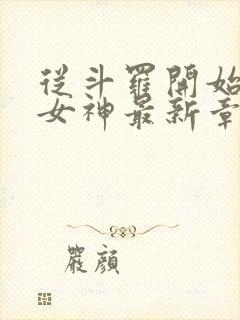 從斗羅開始
女神最新章
嚴顏